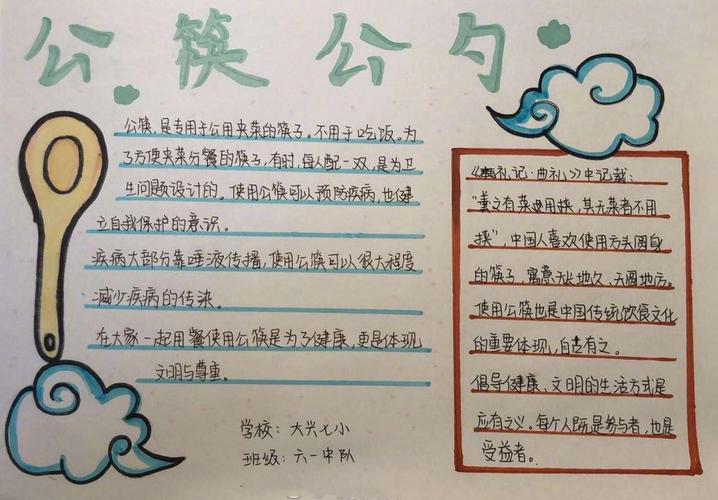 公筷公勺
公筷,是专用于公用夹菜的筷子。不用于吃饭。为
了方便夹菜分餐的筷子,有时,每人配一双,是为卫
生问题设计的。使用公筷可以预防疾病,也健
立自我保护的意识。
疾病大部分靠唾液传播,使用公筷可以很大程度
减少疾病的传染。
在大家一起用餐使用公筷是为了健康,更是体现
文明与尊重。
学校:大兴七小
班级:六一中队
《礼记·曲礼》中记载:
"羹之有菜用挟,其无菜者不用
挟",中国人喜欢使用方头圆身
的筷子,寓意天长地久、天圆地方。
使用公筷也是中国传统饮食文化
的重要体现,自古有之。
倡导健康、文明的生活方式是
应有之义。每个人既是参与者,也是
受益者。